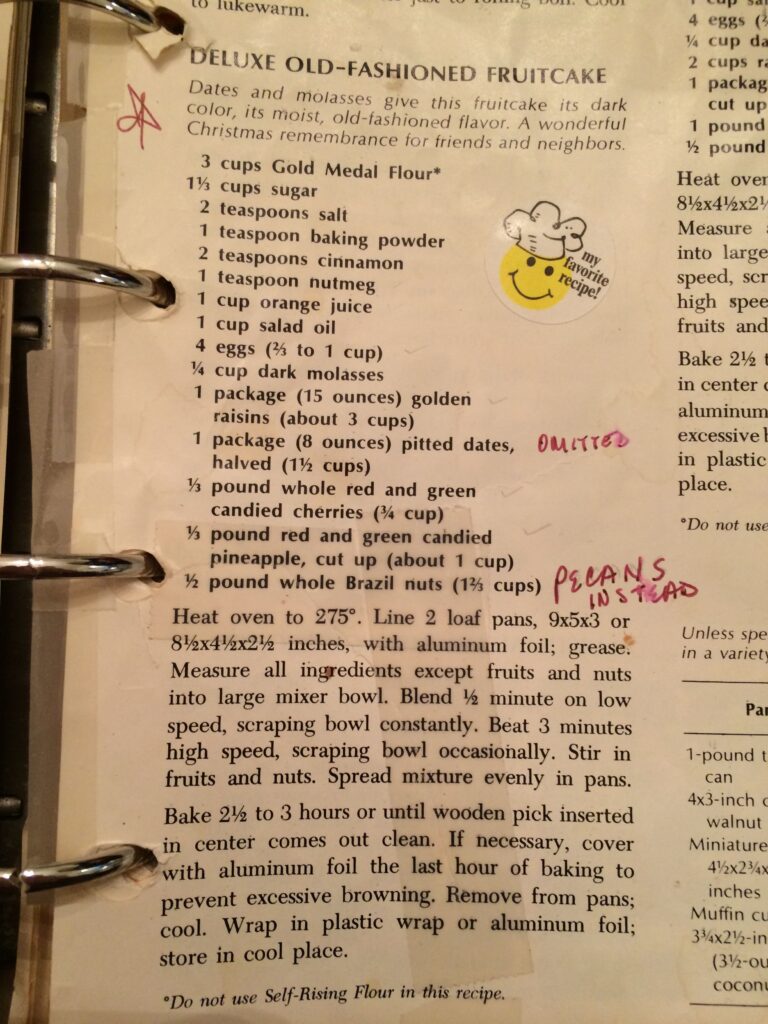 to lukewarm.
DELUXE OLD-FASHIONED FRUITCAKE
Dates and molasses give this fruitcake its dark
color, its moist, old-fashioned flavor. A wonderful
Christmas remembrance for friends and neighbors.
3 cups Gold Medal Flour*
1⅓ cups sugar
2 teaspoons salt
1 teaspoon baking powder
2 teaspoons cinnamon
1 teaspoon nutmeg
1 cup orange juice
1 cup salad oil
4 eggs (⅔ to 1 cup)
¼ cup dark molasses
1 package (15 ounces) golden
raisins (about 3 cups)
1 package (8 ounces) pitted dates, OMITTED
halved (1½ cups)
⅓ pound whole red and green
candied cherries (¾ cup)
⅓ pound red and green candied
pineapple, cut up (about 1 cup)
½ pound whole Brazil nuts (1⅔ cups) PECANS
INSTEAD
my
favorite
recipe!
Heat oven to 275°. Line 2 loaf pans, 9x5x3 or
8½x4½x2½ inches, with aluminum foil; grease.
Measure all ingredients except fruits and nuts
into large mixer bowl. Blend ½ minute on low
speed, scraping bowl constantly. Beat 3 minutes
high speed, scraping bowl occasionally. Stir in
fruits and nuts. Spread mixture evenly in pans.
Bake 2½ to 3 hours or until wooden pick inserted
in center comes out clean. If necessary, cover
with aluminum foil the last hour of baking to
prevent excessive browning. Remove from pans;
cool. Wrap in plastic wrap or aluminum foil;
store in cool place.
*Do not use Self-Rising Flour in this recipe.
4 eggs
¼ cup
2 cups
1
cut up
1 pound
½ pound
Heat oven
8½x4½x2½
Measure
into large
speed,
high
fruits and
Bake 2½
in center
aluminum
excessive
in plastic
place.
*Do not use
Unless
in a variety
1-pound
can
4x3-inch
walnut
Miniature
4½x2¾x
inches
Muffin
3¾x2½-in
(3½-ou